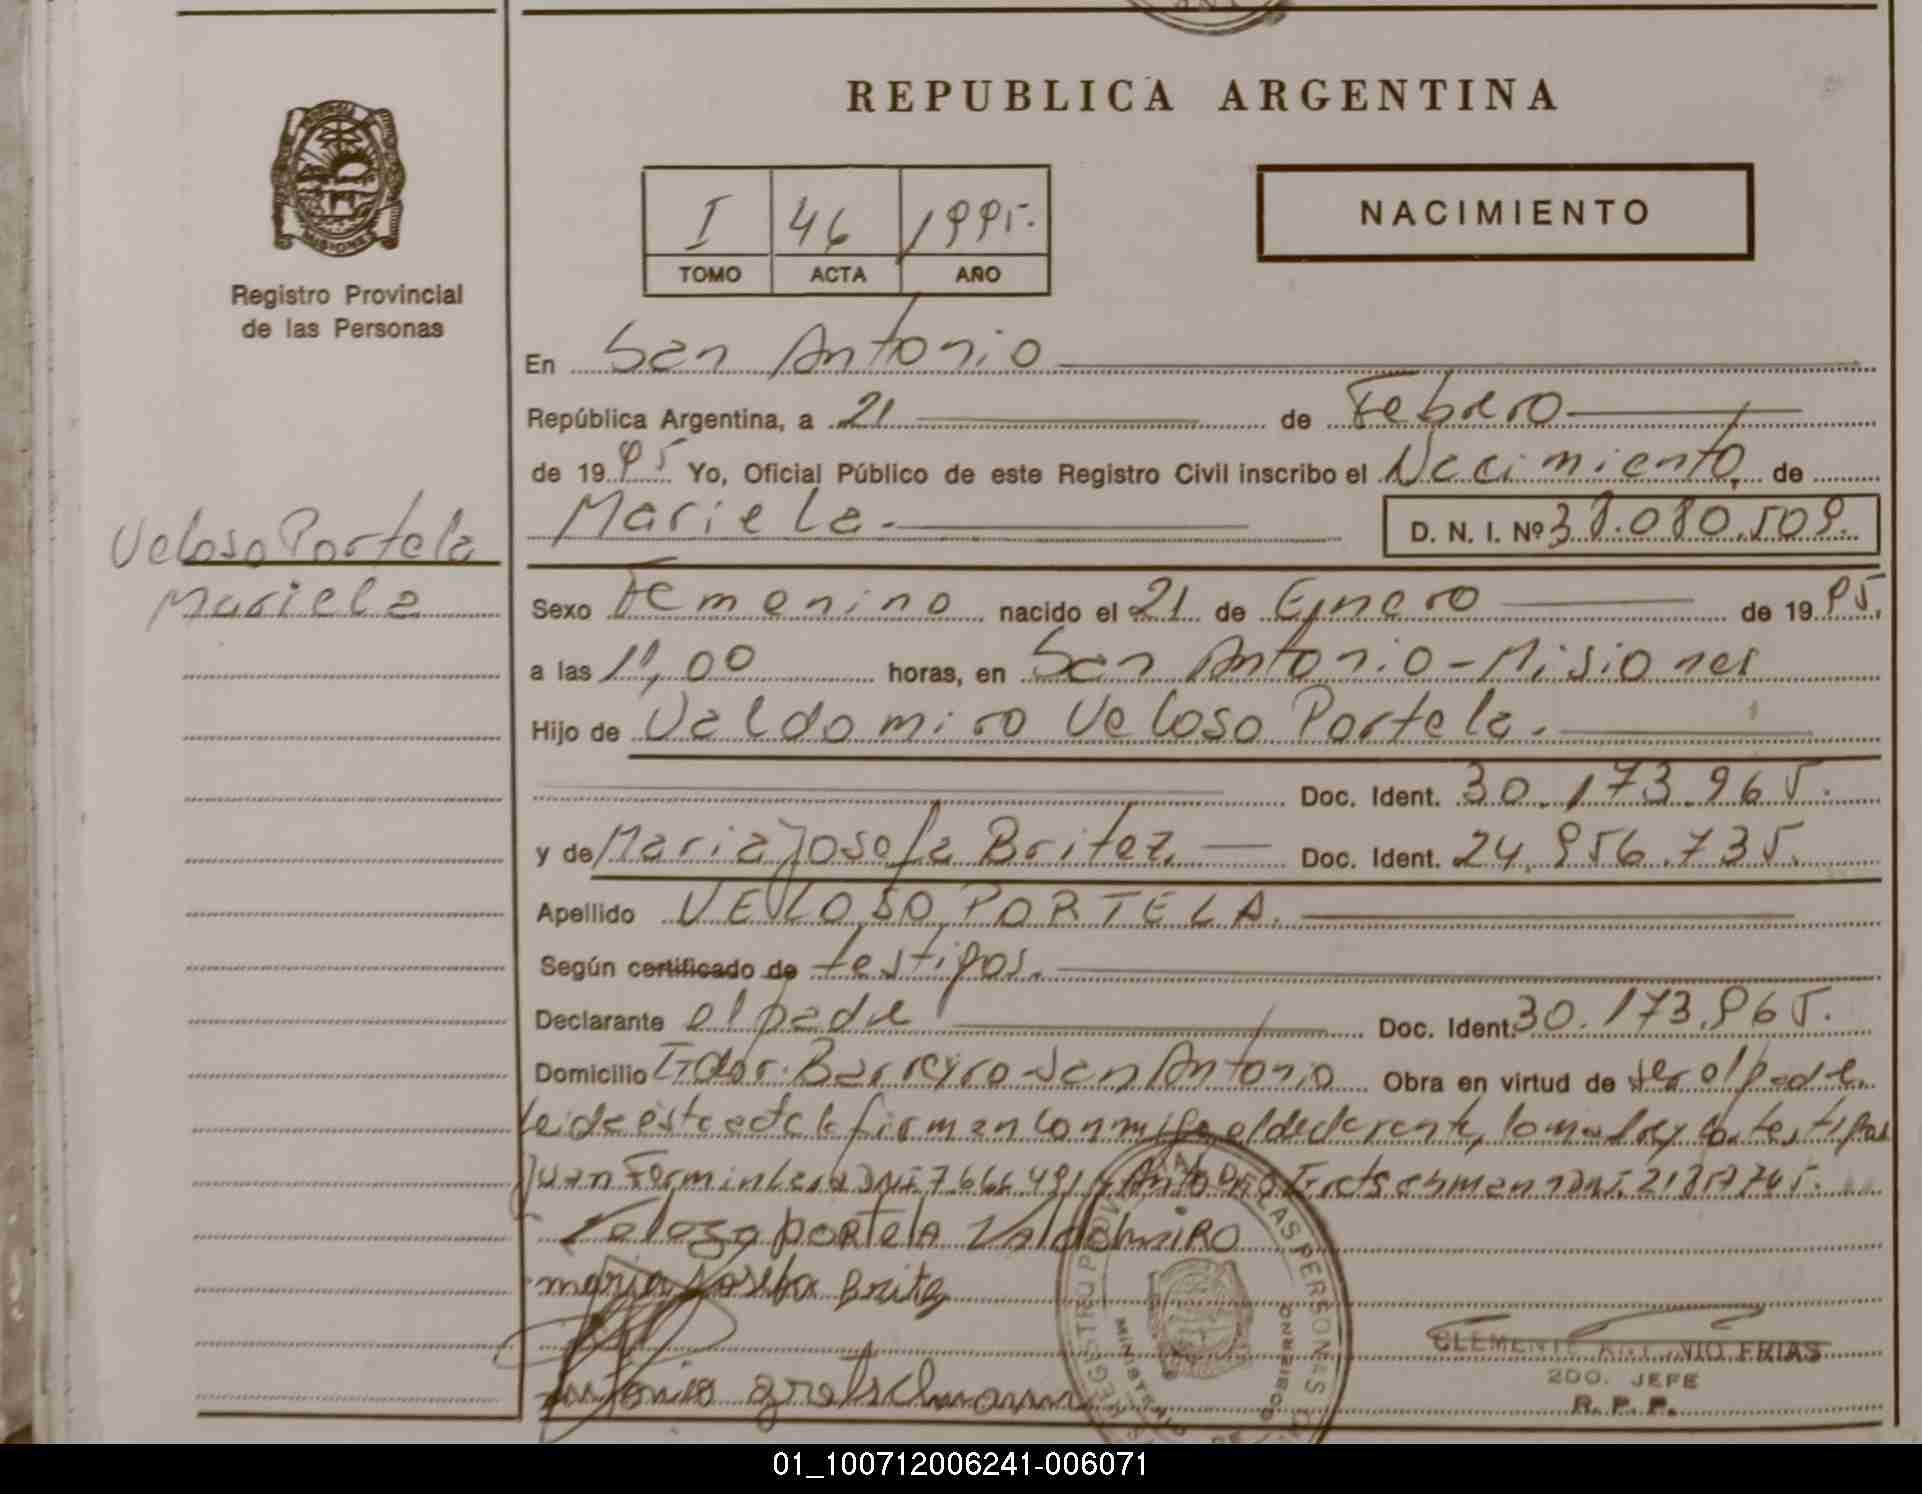 REPUBLICA ARGENTINA
MISIONES
Registro Provincial
de las Personas
I 46 1995.
TOMO ACTA AÑO
NACIMIENTO
En San Antonio
República Argentina, a 21 de Febrero
de 1995 Yo, Oficial Público de este Registro Civil inscribo el Nacimiento, de
Mariela.
D. N. I. Nº 38.080.509.
Veloso Portela
Mariela
Sexo Femenino nacido el 21 de Enero de 1995.
a las 11,00 horas, en San Antonio - Misiones
Hijo de Valdomiro Veloso Portela.
Doc. Ident. 30.173.965.
y de Maria Josefa Britez. Doc. Ident. 24.956.735.
Apellido VELOSO PORTELA.
Según certificado de testigos.
Declarante el padre Doc. Ident. 30.173.965.
Domicilio Gdor. Barreyro San Antonio Obra en virtud de ser el padre.
Leida este acta la firman conmigo el declarante, la madre y los testigos
Juan Fermin DNI 7.666.491 y Antonio
Velozo portela Valdomiro
maria Josefa Brite
Antonio gretschmann
REGISTRO PROVINCIAL DE LAS PERSONAS
MINISTERIO DE GOBIERNO
CLEMENTE ANTONIO FRIAS
2DO. JEFE
R. P. P.
01_100712006241-006071